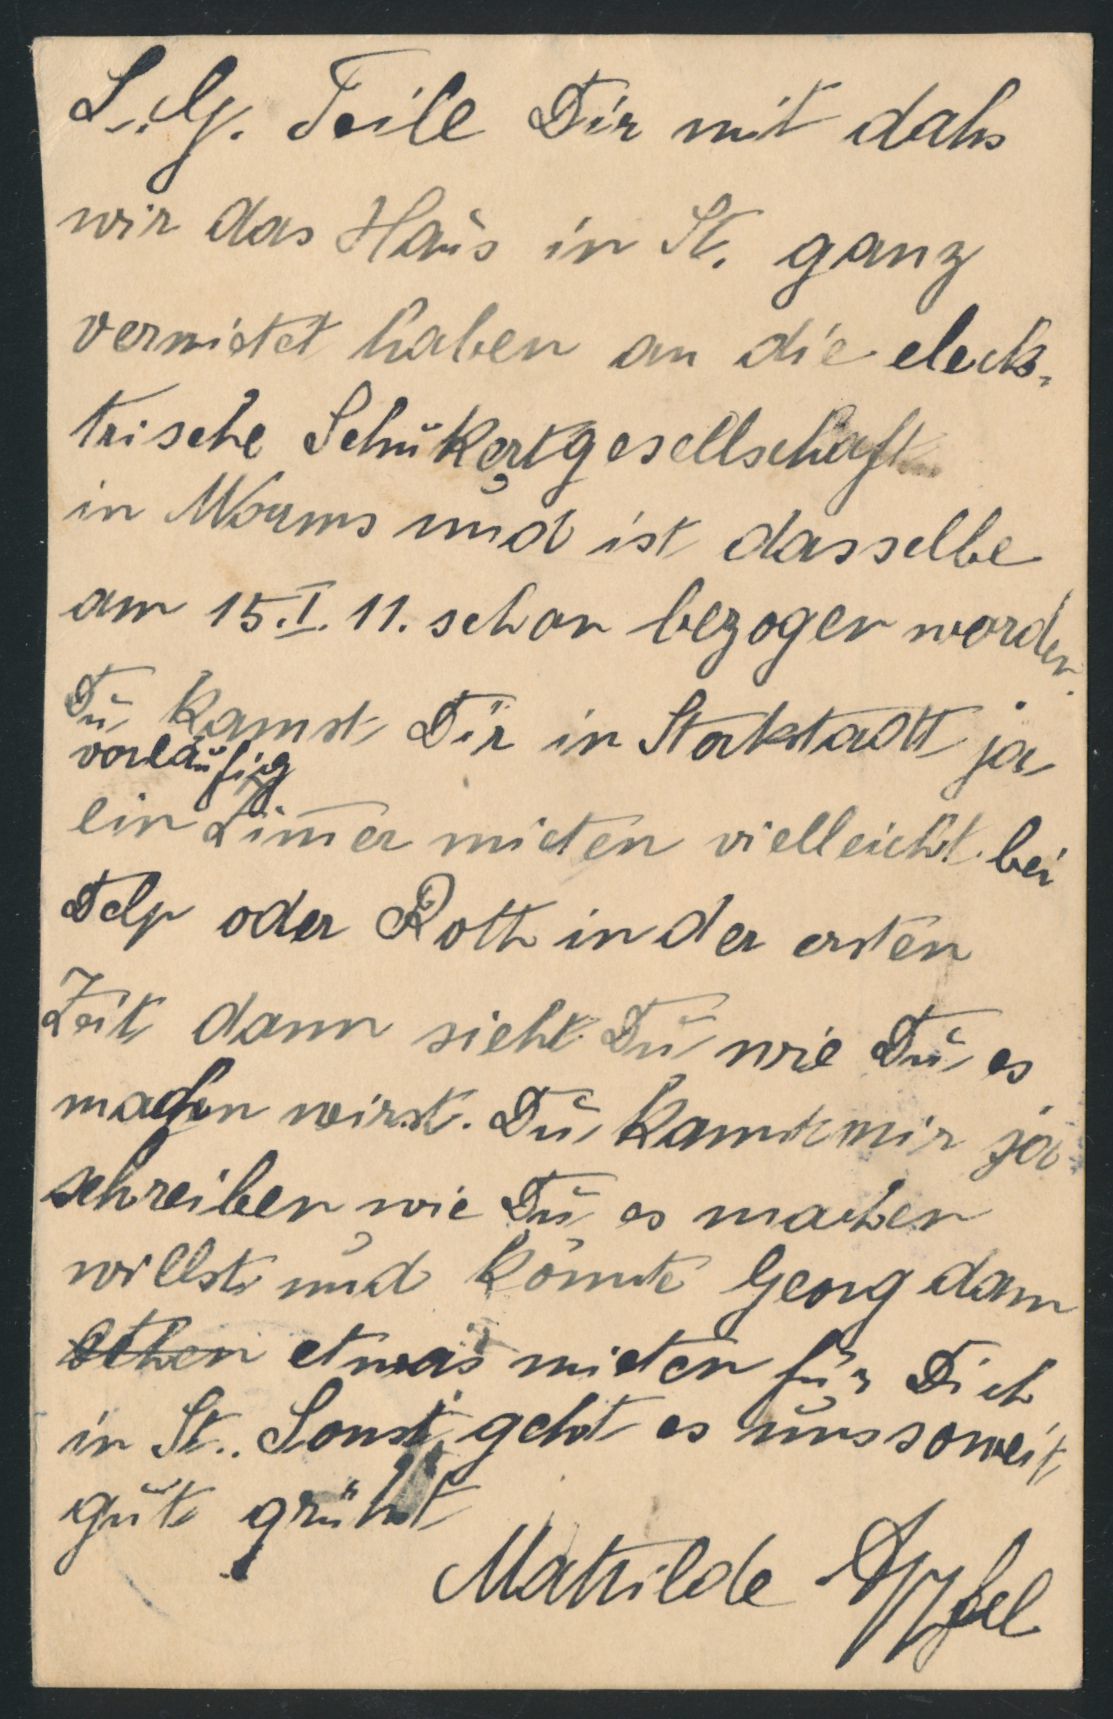 L. G. Teile Dir mit dahs
wir das Haus in St. ganz
vermietet haben an die eleck-
trische Schukertgesellschaft
in Worms und ist dasselbe
am 15.I.11. schon bezogen worden.
Du kannst Dir in Stockstadt ja
vorläufig
ein Zimmer mieten vielleicht bei
Delp oder Roth in der ersten
Zeit dann sieht Du wie Du es
machen wirst. Du kannst mir ja
schreiben wie Du es machen
willst und könnte Georg dann
etwas mieten für Dich
in St.. Sonst geht es uns soweit
gut grühst
Mathilde Apfel